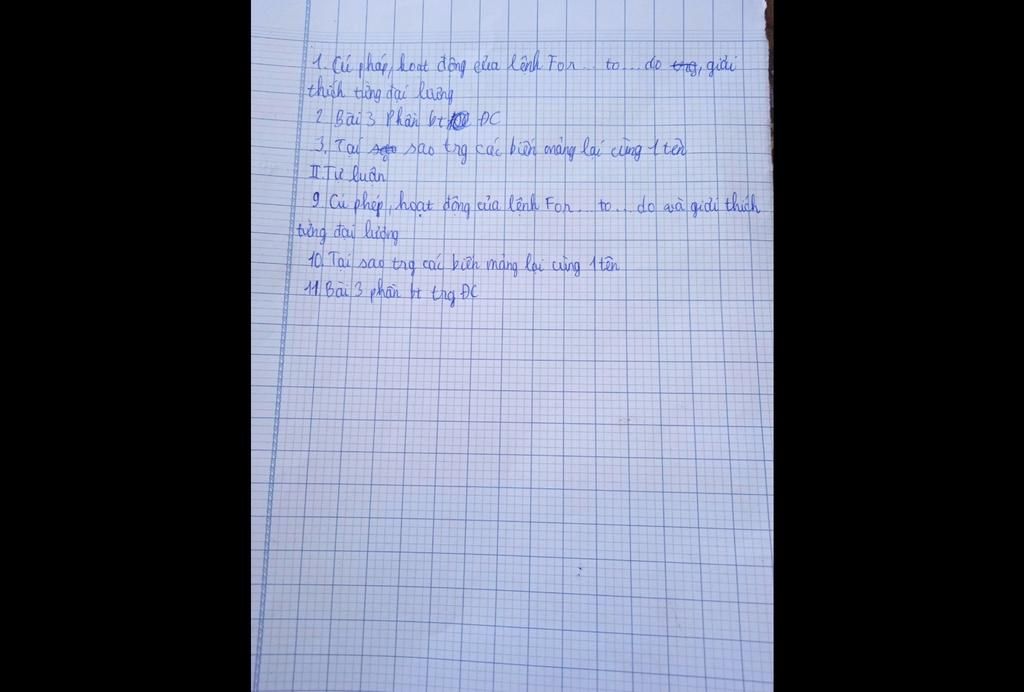 1. Cú pháp, hoạt động của lệnh For... to... do trg, giải
thích từng đại lượng
2 Bài 3 Phần bt ĐC
3. Tại sao sao trg các biến mảng lại cùng 1 tên
II. Tự luận
9. Cú phép, hoạt động của lệnh For... to... do và giải thích
từng đại lượng
10. Tại sao trg các biến mảng lại cùng 1 tên
11. Bài 3 phần bt trg ĐC